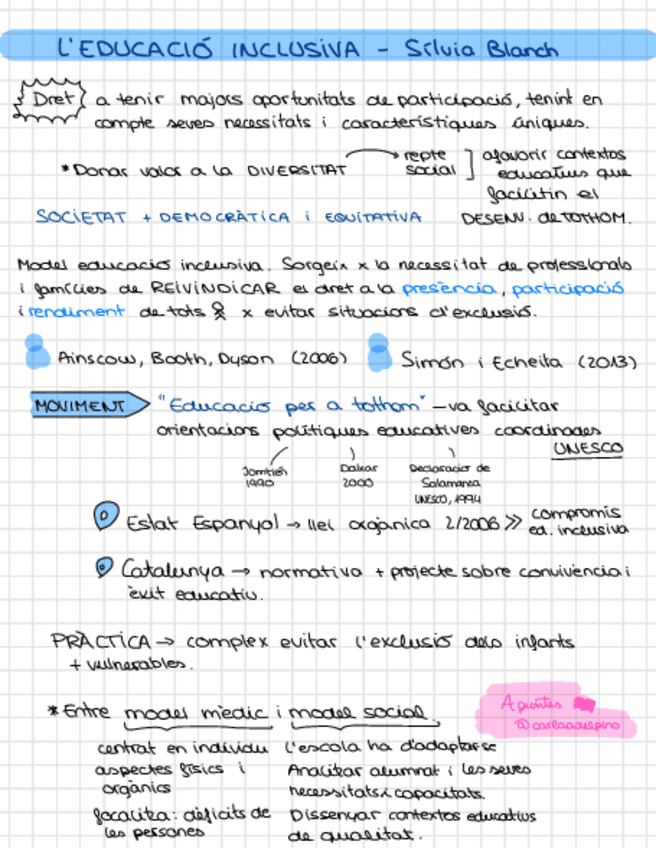 L'EDUCACIÓ INCLUSIVA - Sílvia Blanch
Dret a tenir majors oportunitats de participació, tenint en
compte seves necessitats i característiques úniques.
*Donar valor a la DIVERSITAT → repte social ] afavorir contextos
educatius que
facilitin el
DESENV. de TOTHOM.
SOCIETAT + DEMOCRÀTICA i EQUITATIVA
Model educació inclusiva. Sorgeix x la necessitat de professionals
i famílies de REIVINDICAR el dret a la presència, participació
i rendiment de tots x evitar situacions d'exclusió.
Ainscow, Booth, Dyson (2006)
Simón i Echeita (2013)
MOVIMENT "Educació per a tothom" – va facilitar
orientacions polítiques educatives coordinades
UNESCO
Jomtien
1990
Dakar
2000
Declaració de
Salamanca
UNESCO, 1994
Estat Espanyol → llei orgànica 2/2006 >> compromís
ed. inclusiva
Catalunya → normativa + projecte sobre convivència i
èxit educatiu.
PRÀCTICA → complex evitar l'exclusió dels infants
+ vulnerables.
*Entre model mèdic i model social.
Apuntes
@carlaadelpino
centrat en individu
aspectes físics i
orgànics
focalitza: dèficits de
les persones
l'escola ha d'adaptar-se
Analitzar alumnat i les seves
necessitats x capacitats.
Dissenyar contextos educatius
de qualitat.